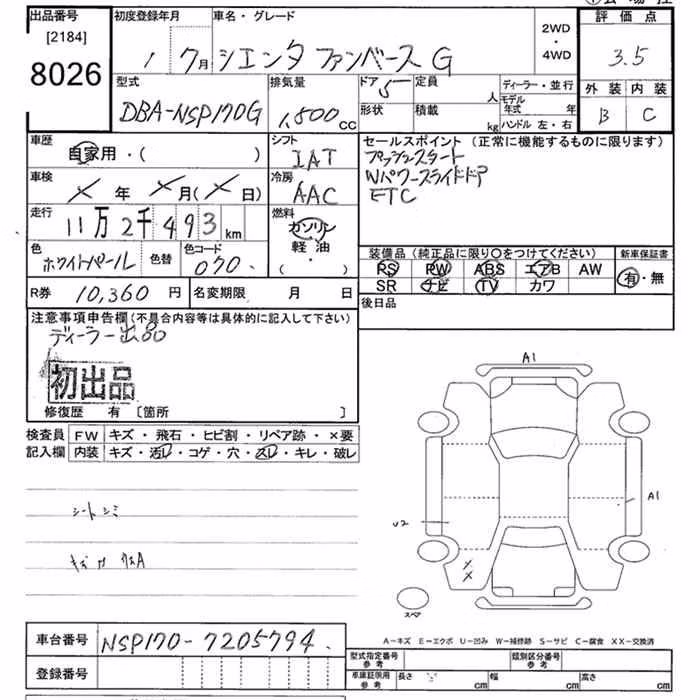 出品番号 初度登録年月 車名・グレード 2WD・4WD 評価点
[2184]
8026 1 7月 シエンタ ファンベースG 3.5
型式 排気量 ドア 5 定員 人 ディーラー・並行 外装 内装
DBA-NSP170G 1,500cc 形状 積載 kg モデル年式 年 B C
ハンドル 左・右
車歴 シフト セールスポイント (正常に機能するものに限ります)
自家用・( ) IAT プッシュスタート
車検 冷房 Wパワースライドドア
× 年 × 月(× 日) AAC ETC
走行 燃料
11万2千493km ガソリン
軽油
・( )
色 色替 色コード 装備品 (純正品に限り○をつけてください) 新車保証書
ホワイトパール 070 PS PW ABS エアB AW 有・無
R券 10,360円 名変期限 月 日 SR ナビ TV カワ
注意事項申告欄(不具合内容等は具体的に記入して下さい) 後日品
ディーラー出品
初出品
修復歴 有 [箇所 ]
検査員 FW キズ・飛石・ヒビ割・リペア跡・×要
記入欄 内装 キズ・汚レ・コゲ・穴・スレ・キレ・破レ
A1
A1
シートシミ U2
××
スペア
A-キズ E-エクボ U-凹み W-補修跡 S-サビ C-腐食 XX-交換済
車台番号 NSP170-7205794
型式指定番号 参考 類別区分番号 参考
登録番号 車庫証明用 参考 長さ cm 幅 cm 高さ cm